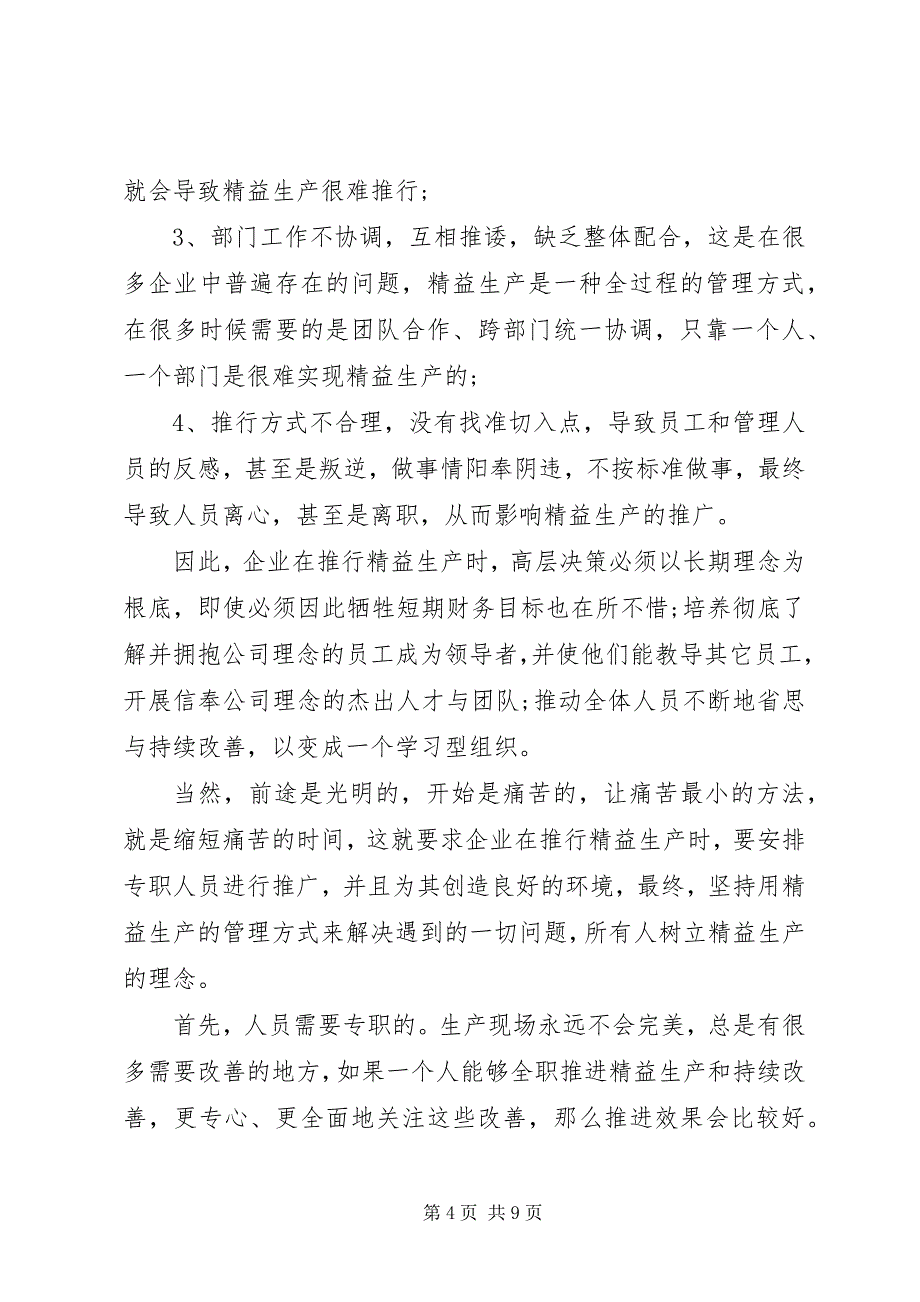 就会导致精益生产很难推行;
3、部门工作不协调，互相推诿，缺乏整体配合，这是在很
多企业中普遍存在的问题，精益生产是一种全过程的管理方式，
在很多时候需要的是团队合作、跨部门统一协调，只靠一个人、
一个部门是很难实现精益生产的;
4、推行方式不合理，没有找准切入点，导致员工和管理人
员的反感，甚至是叛逆，做事情阳奉阴违，不按标准做事，最终
导致人员离心，甚至是离职，从而影响精益生产的推广。
因此，企业在推行精益生产时，高层决策必须以长期理念为
根底，即使必须因此牺牲短期财务目标也在所不惜;培养彻底了
解并拥抱公司理念的员工成为领导者，并使他们能教导其它员工，
开展信奉公司理念的杰出人才与团队;推动全体人员不断地省思
与持续改善，以变成一个学习型组织。
当然，前途是光明的，开始是痛苦的，让痛苦最小的方法，
就是缩短痛苦的时间，这就要求企业在推行精益生产时，要安排
专职人员进行推广，并且为其创造良好的环境，最终，坚持用精
益生产的管理方式来解决遇到的一切问题，所有人树立精益生产
的理念。
首先，人员需要专职的。生产现场永远不会完美，总是有很
多需要改善的地方，如果一个人能够全职推进精益生产和持续改
善，更专心、更全面地关注这些改善，那么推进效果会比较好。
第 4 页 共 9 页